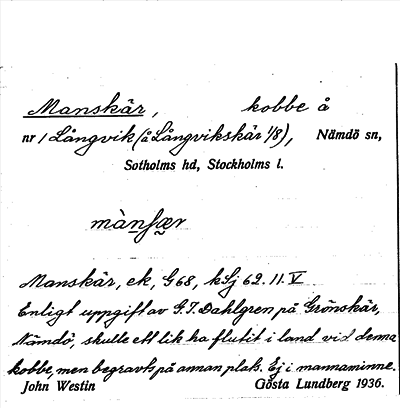 Manskär, kobbe å
nr 1 Långvik (å Långvikskär 1/8), Nämdö sn,
Sotholms hd, Stockholms l.
mànʃær
Manskär, ek, G68, kSj 62. 11. V
Enligt uppgift av G. T. Dahlgren på Grönskär,
Nämdö, skulle ett lik ha flutit i land vid denna
kobbe, men begravts på annan plats. Ej i mannaminne.
John Westin Gösta Lundberg 1936.